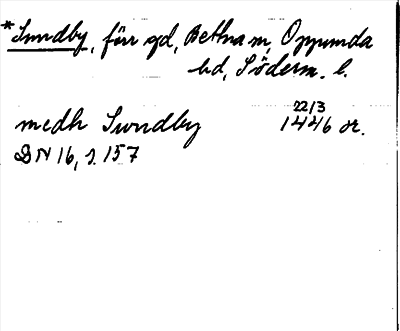 *Sundby, förr gd, Bettna sn, Oppunda
hd, Söderm. l.
22/3
medh Swndby 1446 or.
DN 16, s. 157